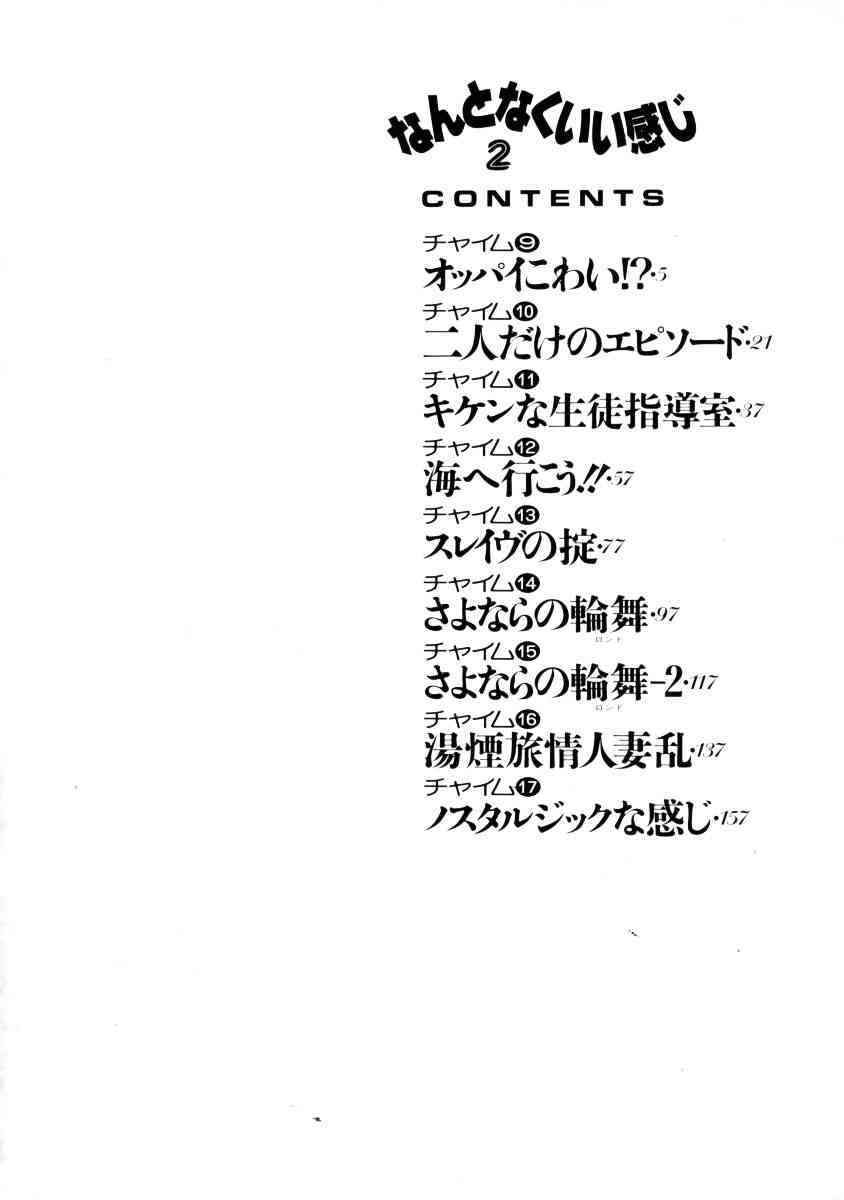 なんとなくいい感じ
2
CONTENTS
チャイム⑨
オッパイこわい!?・5
チャイム⑩
二人だけのエピソード・21
チャイム⑪
キケンな生徒指導室・37
チャイム⑫
海へ行こう!!・57
チャイム⑬
スレイヴの掟・77
チャイム⑭
さよならの輪舞・97
ロンド
チャイム⑮
さよならの輪舞-2・117
ロンド
チャイム⑯
湯煙旅情人妻乱・137
チャイム⑰
ノスタルジックな感じ・157